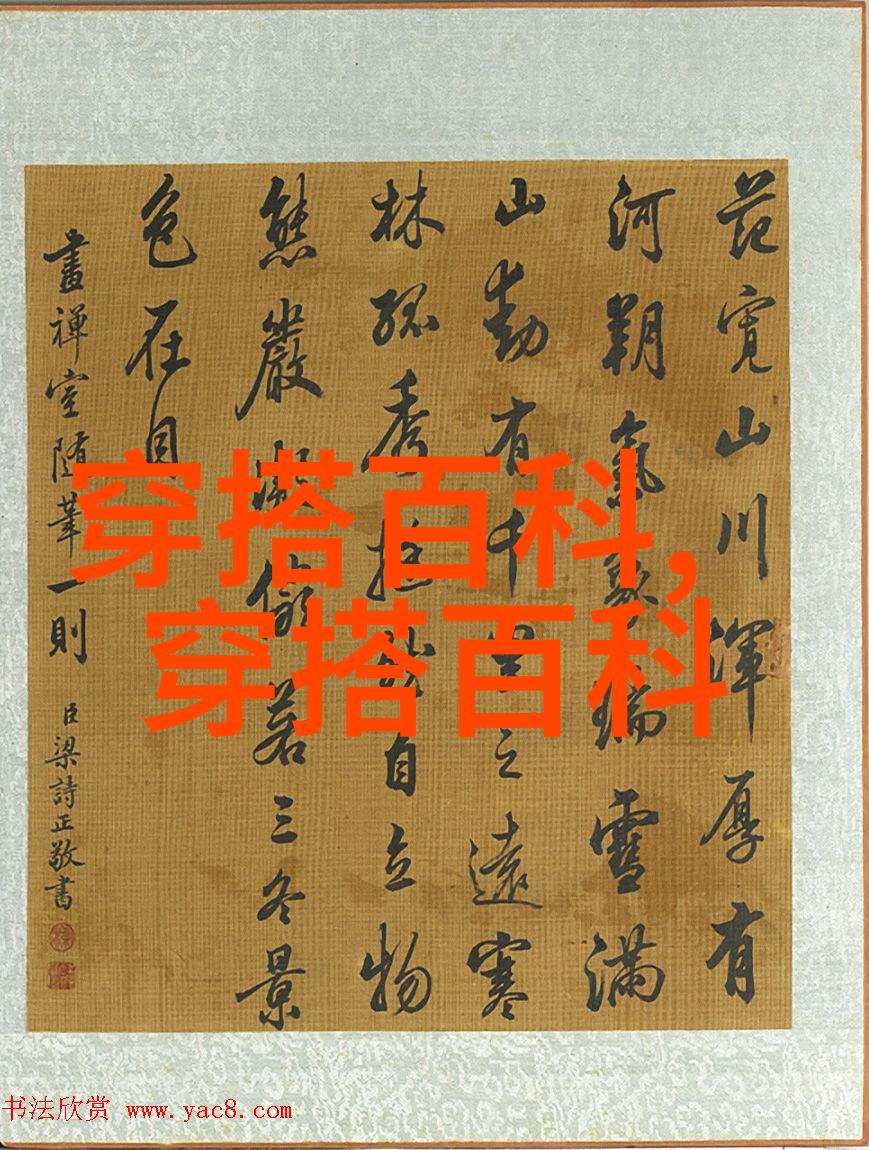 范寬山川渾厚有
河朔氣象瑞雪滿
山動有千里之遠寒
林孤秀挺然自立物
態嚴凝儼若三冬景
色在目
畫禪室隨筆一則
臣梁詩正敬書
穿搭百科,
穿搭百科
书法欣赏 www.yac8.com